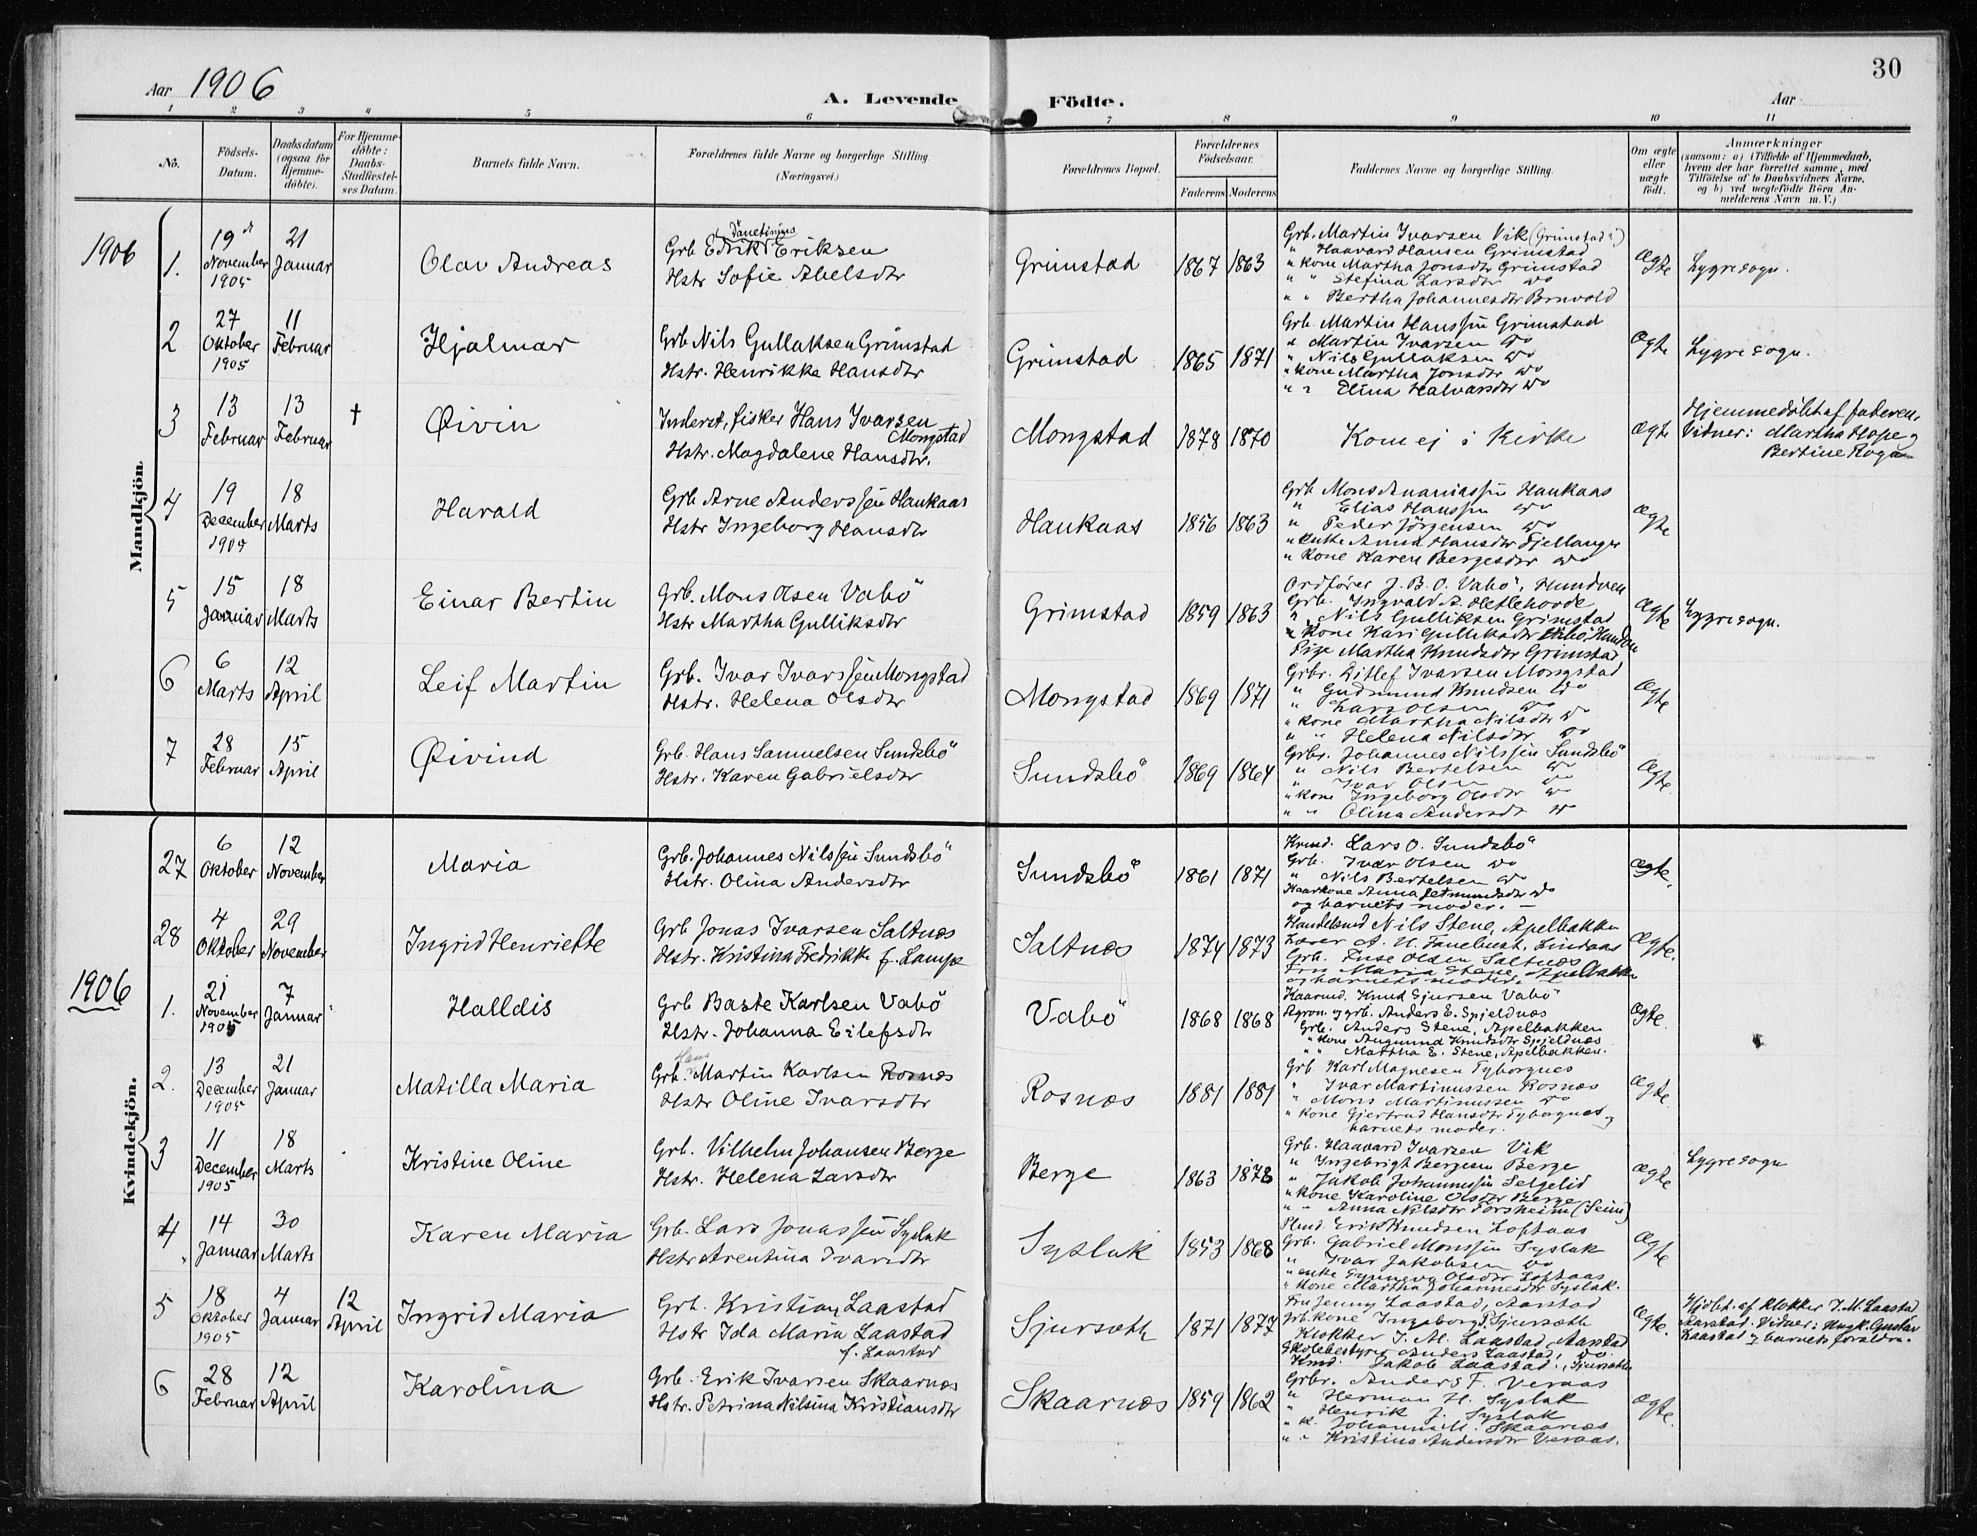 30
Aar 1906
A. Levende Födte.
Aar
1 2 3 4 5 6 7 8 9 10 11
Nō.
Födsels-Datum.
Daabsdatum (ogsaa for Hjemme-döbte).
For Hjemme-döbte: Daabs-Stadfæstel-ses Datum.
Barnets fulde Navn.
Forældrenes fulde Navne og borgerlige Stilling (Næringsvei.)
Forældrenes Bopæl.
Forældrenes Födselsaar.
Faderens Moderens
Faddernes Navne og borgerlige Stilling.
Om ægte eller uægte födt.
Anmærkninger
(saasom: a) i Tilfælde af Hjemmedaab, hvem der har forrettet samme, med Tilföielse af to Daabsvidners Navne, og b) ved uægtefödte Börn An-melderens Navn m. V.)
Mandkjön.
1906
1. 19de November 1905
21 Januar
Olav Andreas
Grb Erik Eriksen
Hstr Sofie Abelsdtr
Grimstad
1867 1863
Grb. Martin Ivarsen Vik (Grimstad)
" Haavard Hansen Grimstad
" kone Martha Jonsdtr Grimstad
" " Stefina Larsdtr do
" " Bertha Johannesdtr
Ægte
Lygresogn.
2 27 Oktober 1905
11 Februar
Hjalmar
Grb Nils Gullaksen Grimstad
Hstr. Henrikke Hansdtr
Grimstad
1865 1871
Grb. Martin Hanssen Grimstad
" Martin Ivarsen do
" Nils Gullaksen do
" kone Martha Jonsdtr do
" " Elina Halvarsdtr do
Ægte
Lygresogn.
3 13 Februar
13 Februar
†
Øivin
Inderst, fisker Hans Ivarsen Mongstad
Hstr. Magdalene Hansdtr.
Mongstad
1878 1870
Kom ej i Kirke
Ægte
Hjemmedøbt af faderen.
Vidner: Martha Hope og
Bertine
4 19 December 1905
18 Marts
Harald
Grb Arne Anderssen Haukaas
Hstr Ingeborg Hansdtr
Haukaas
1856 1863
Grb Mons Ananiassen Haukaas
" Elias Hanssen do
" Peder Jørgensen do
" enke Anna Hansdtr Fjellanger
" kone Karen Børgesdtr do
Ægte
5 15 Januar
18 Marts
Einar Bertin
Grb. Mons Olsen Vabö
Hstr Martha Gulliksdtr
Grimstad
1859 1863
Ordfører J. B. O. Vabö, Hundven
Grb. Ingvald A. Hetlehovde
" Nils Gulliksen Grimstad
" kone Kari Gulliksdtr Vabö, Hundven
Pige Martha Knudsdtr Grimstad
Ægte
Lygresogn.
6 6 Marts
12 April
Leif Martin
Grb. Ivar Ivarssen Mongstad
Hstr. Helena Olsdtr
Mongstad
1869 1871
Grbr. Ditlef Ivarsen Mongstad
" Gudmund Knudsen do
" Lars Olsen do
" kone Martha Nilsdtr do
" " Helena Nilsdtr do
Ægte
7 28 Februar
15 April
Øivind
Grb. Hans Samuelsen Sundsbö
Hstr. Karen Gabrielsdtr
Sundsbö
1869 1864
Grbr. Johannes Nilssen Sundsbö
" Nils Bertelsen do
" Ivar Olsen do
" kone Ingeborg Olsdtr do
" " Olina Andersdt do
Ægte.
Kvindekjön.
27 6 Oktober
12 November
Maria
Grb. Johannes Nilssen Sundsbö
Hstr. Olina Andersdtr
Sundsbö
1861 1871
Lars O. Sundsbö
Grb. Ivar Olsen do
" Nils Bertelsen do
Kaarkone Anna do
og barnets moder. —
Ægte.
28 4 Oktober
29 November
Ingrid Henriette
Grb Jonas Ivarsen Saltnæs
Hstr. Kristina Fredrikke f. Lampe
Saltnæs
1874 1873
Handelsmd Nils Stene, Apelbakken
Lærer A. N. Tanebust, Lindaas
Grb. Olsen Saltnæs
Fru Maria Stene, Apelbakken
og barnets moder.
Ægte.
1906
1. 21 November 1905
7 Januar
Halldis
Grb Baste Karlsen Vabö
Hstr. Johanna Eilefsdtr
Vabö
1868 1868
Kaarmd. Knud Sjursen Vabö
Agron. og grb. Anders E. Spjeldnæs
Grb. Anders Stene, Apelbakken
" kone Knudsdtr Spjeldnæs
" " Martha E. Stene, Apelbakken.
Ægte.
2. 13 December 1905
21 Januar
Matilla Maria
Grb. Hans Martin Karlsen Rosnæs
Hstr Oline Ivarsdtr
Rosnæs
1881 1881
Grb Karl Magnesen Fyborgnes
" Ivar Martinussen Rosnæs
" Mons Martinussen do
" kone Gjertrud Hansdtr Fyborgnes og
barnets moder.
Ægte.
3 11 December 1905
18 Marts
Kristine Oline
Grb. Vilhelm Johansen Berge
Hstr. Helena Larsdtr
Berge
1863 1878
Grb. Haavard Ivarsen Vik
" Ingebrigt Børgesen Berge
" Jakob Johannessen Seljelid
" kone Karoline Olsdtr Berge
" " Anna Nilsdtr Forsheim (Seim)
Ægte
Lygresogn
4 14 Januar
30 Marts
Karen Maria
Grb. Lars Jonassen Syslak
Hstr Arentina Ivarsdtr
Syslak
1853 1868
Erik Knudsen Loftaas
Grb. Gabriel Monssen Syslak
" Ivar Jakobsen do
" enke Synneva Olsdtr Loftaas
" kone Martha Johannesdtr Syslak.
Ægte
5 18 Oktober 1905
4 Januar
12 April
Ingrid Maria
Grb. Kristian Laastad
Hstr Ida Maria Laastad
f. Laastad
Sjursæth
1871 1877
Fru Jenny Laastad, Aarstad
grb kone Ingeborg P. Sjursæth
Klokker J. M. Laastad, Aarstad
Skolebestyrer Anders Laastad, do.
Kmd. Jakob Laastad, Sjursæth
Ægte.
Hjdbt. af klokker J. M. Laastad
Aarstad. Vidner: Gustav
Laastad og barnets forældre.
6 28 Februar
12 April
Karolina
Grb. Erik Ivarsen Skaarnæs
Hstr. Petrina Nilsina Kristiansdtr
Skaarnæs
1859 1862
Grbr. Anders F. Veraas
" Herman H. Syslak
" Henrik J. Syslak
" k. Johanna M. Skaarnæs
" " Kristina Andersdtr Veraas.
Ægte.